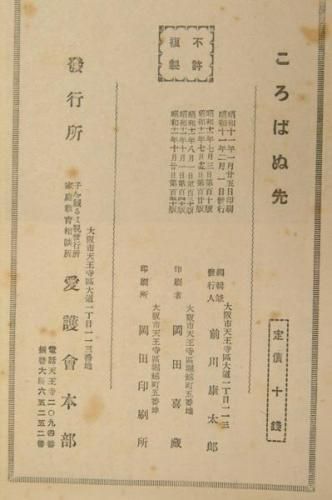 ころばぬ先
定價十錢
不許
複製
昭和十一年一月廿五日印刷
昭和十一年二月一日發行
昭和十年七月三日第百十版
昭和十一年八月一日第百三十版
昭和十一年十月一日第百四十版
昭和十一年十月廿日第百五十版
大阪市天王寺區大道一丁目一一三
編輯兼
發行人 前川康太郎
大阪市天王寺區堀越町五番地
印刷者 岡田喜藏
大阪市天王寺區堀越町五番地
印刷所 岡田印刷所
發行所
大阪市天王寺區大道一丁目一一三番地
子を蝕るこ親發行所
家庭教育相談所
愛護會本部
電話天王寺二〇九四番
振替大阪六五二五二番